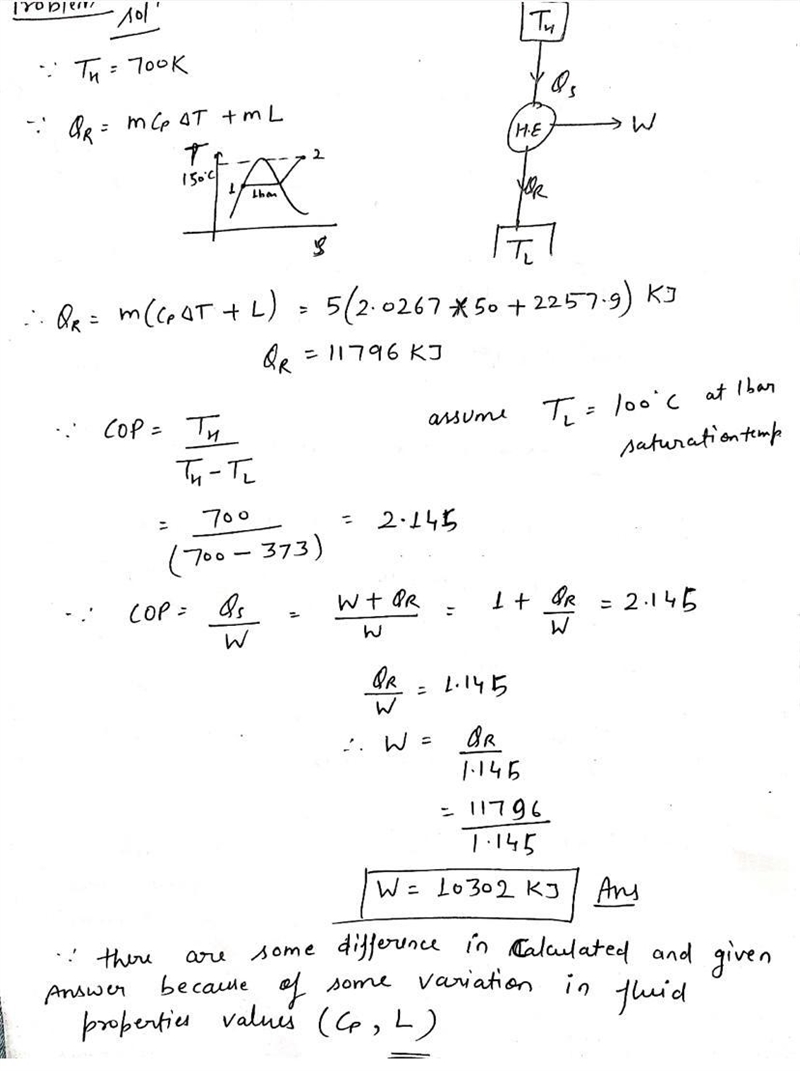 Problem sol
∵ T_H = 700K
∵ Q_R = m C_P ΔT + m L
T
150°C
1
1bar
2
S
T_H
Q_S
H.E
W
Q_R
T_L
∴ Q_R = m(C_P ΔT + L) = 5(2.0267 * 50 + 2257.9) KJ
Q_R = 11796 KJ
∵ COP = T_H / (T_H - T_L)
assume T_L = 100°C at 1bar
saturation temp
= 700 / (700 - 373) = 2.145
∵ COP = Q_S / W = (W + Q_R) / W = 1 + Q_R / W = 2.145
Q_R / W = 1.145
∴ W = Q_R / 1.145
= 11796 / 1.145
W = 10302 KJ Ans
∵ there are some difference in Calculated and given
Answer because of some variation in fluid
properties values (C_P, L)